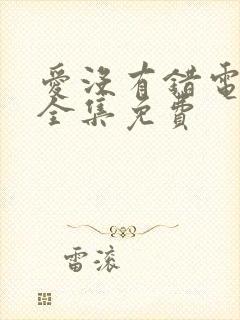 愛沒有錯電
全集免費
雷滾